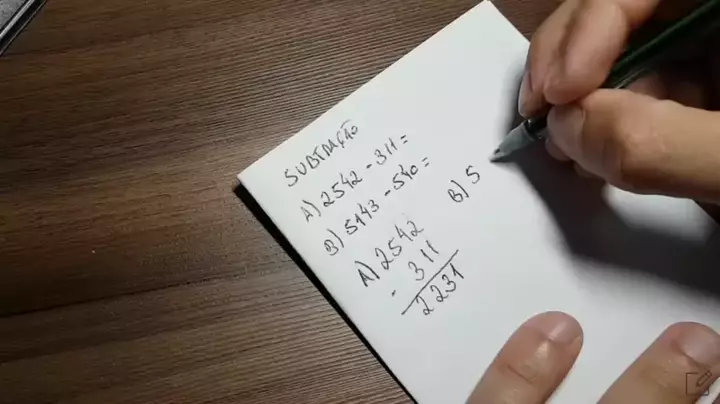 SUBTRAÇÃO
A) 2542 - 311 =
B) 5143 - 540 =
A) 2542
- 311
2231
B) 5